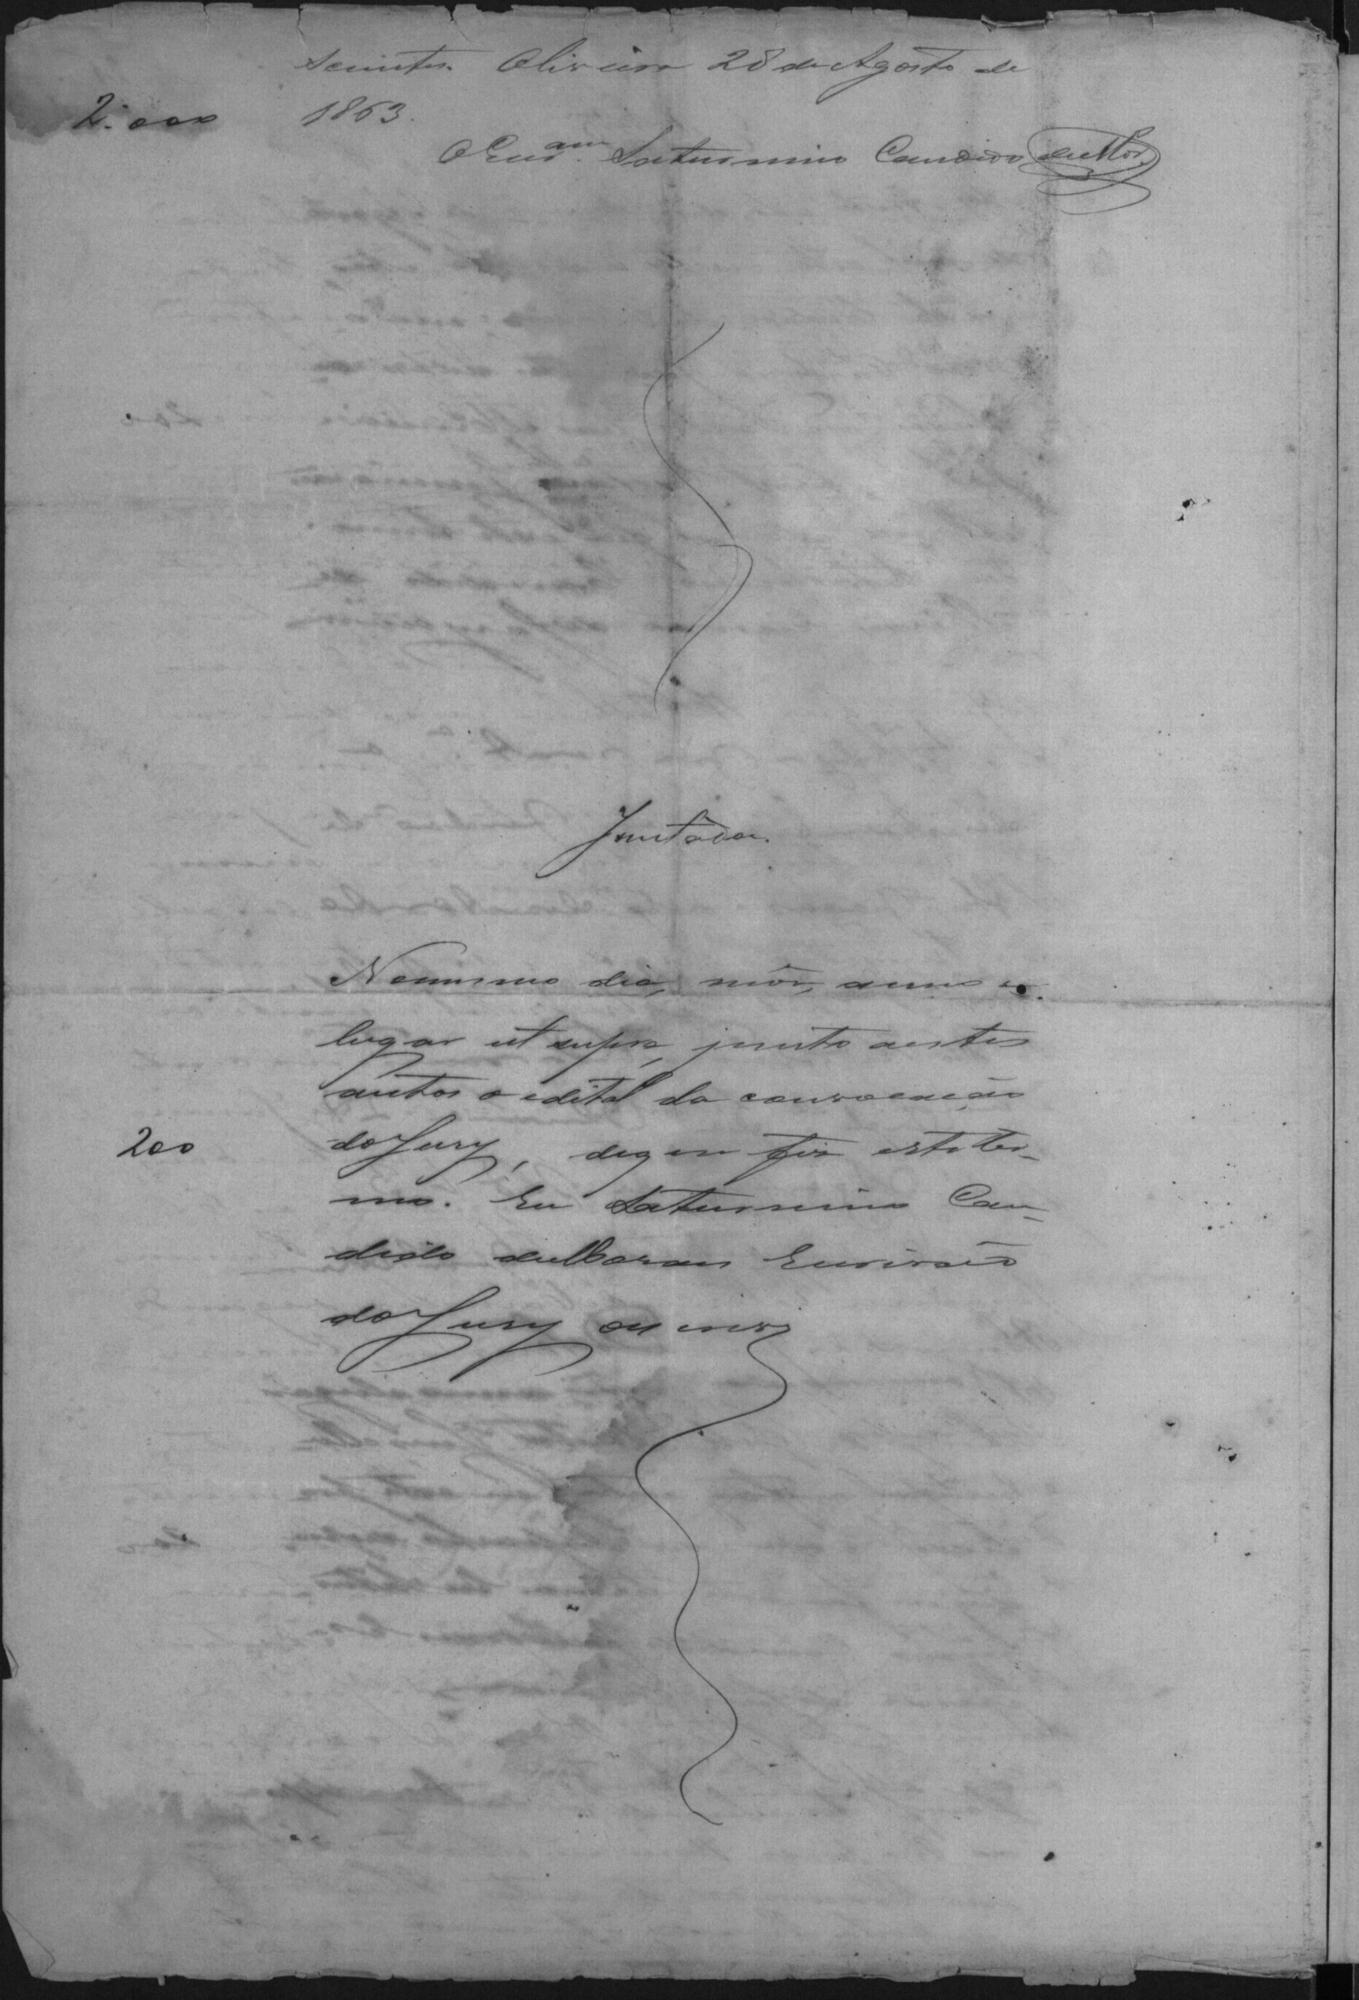 scientes. Oliveira 28 de Agosto de
2.000 1863.
OEscr.am Saturnino Candido de Mor.
Juntada.
No mesmo dia, mês, anno e
lugar ut supra, junto aestes
autos o edital da convocação
200 do Jury, de que fiz este ter-
mo. Eu Saturnino Can-
dido de Moraes Escrivão
do Jury escrevi